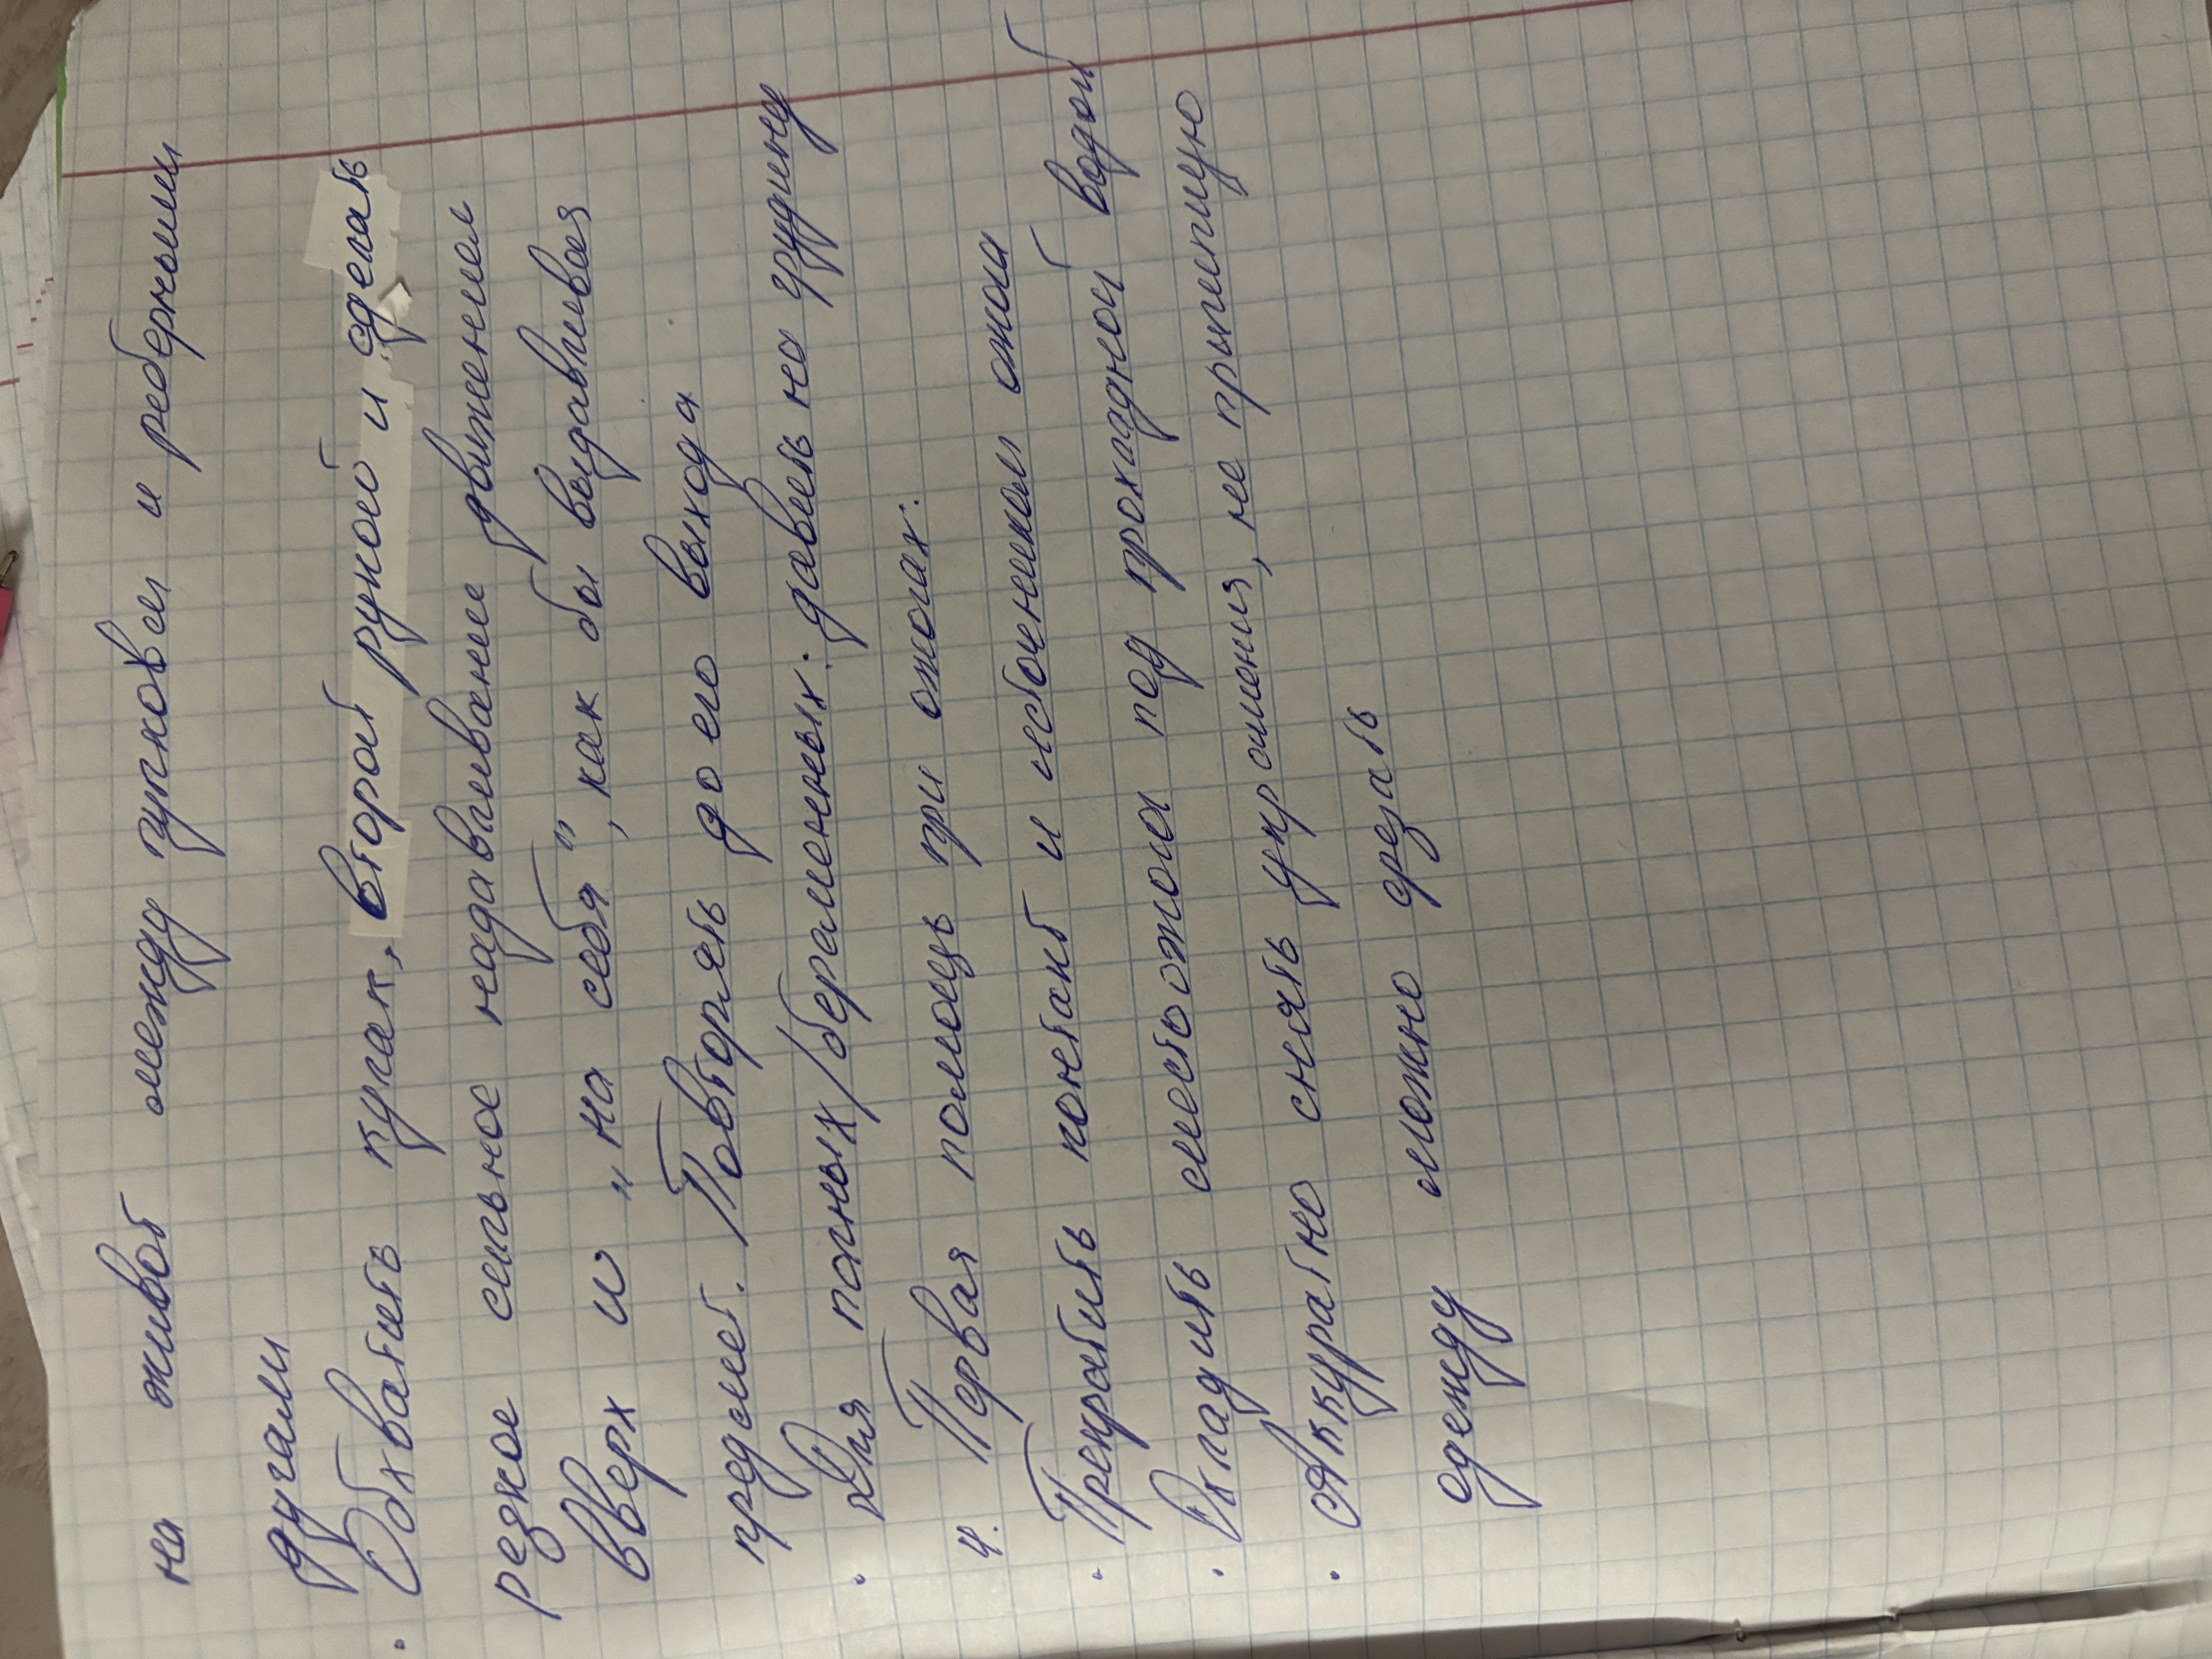 на живот между пупком и реберными
дугами
• Обхватить кулак, второй рукой и сделать
резкое сильное надавливание движением
вверх и „на себя", как бы выдавливая
предмет. Повторять до его выхода
• Для полных/беременных: давить на грудину
4. Первая помощь при ожогах:
• Прекратить контакт с источником ожога
• Охладить место ожога под прохладной водой
• Аккуратно снять украшения, не прилипшую
одежду можно срезать